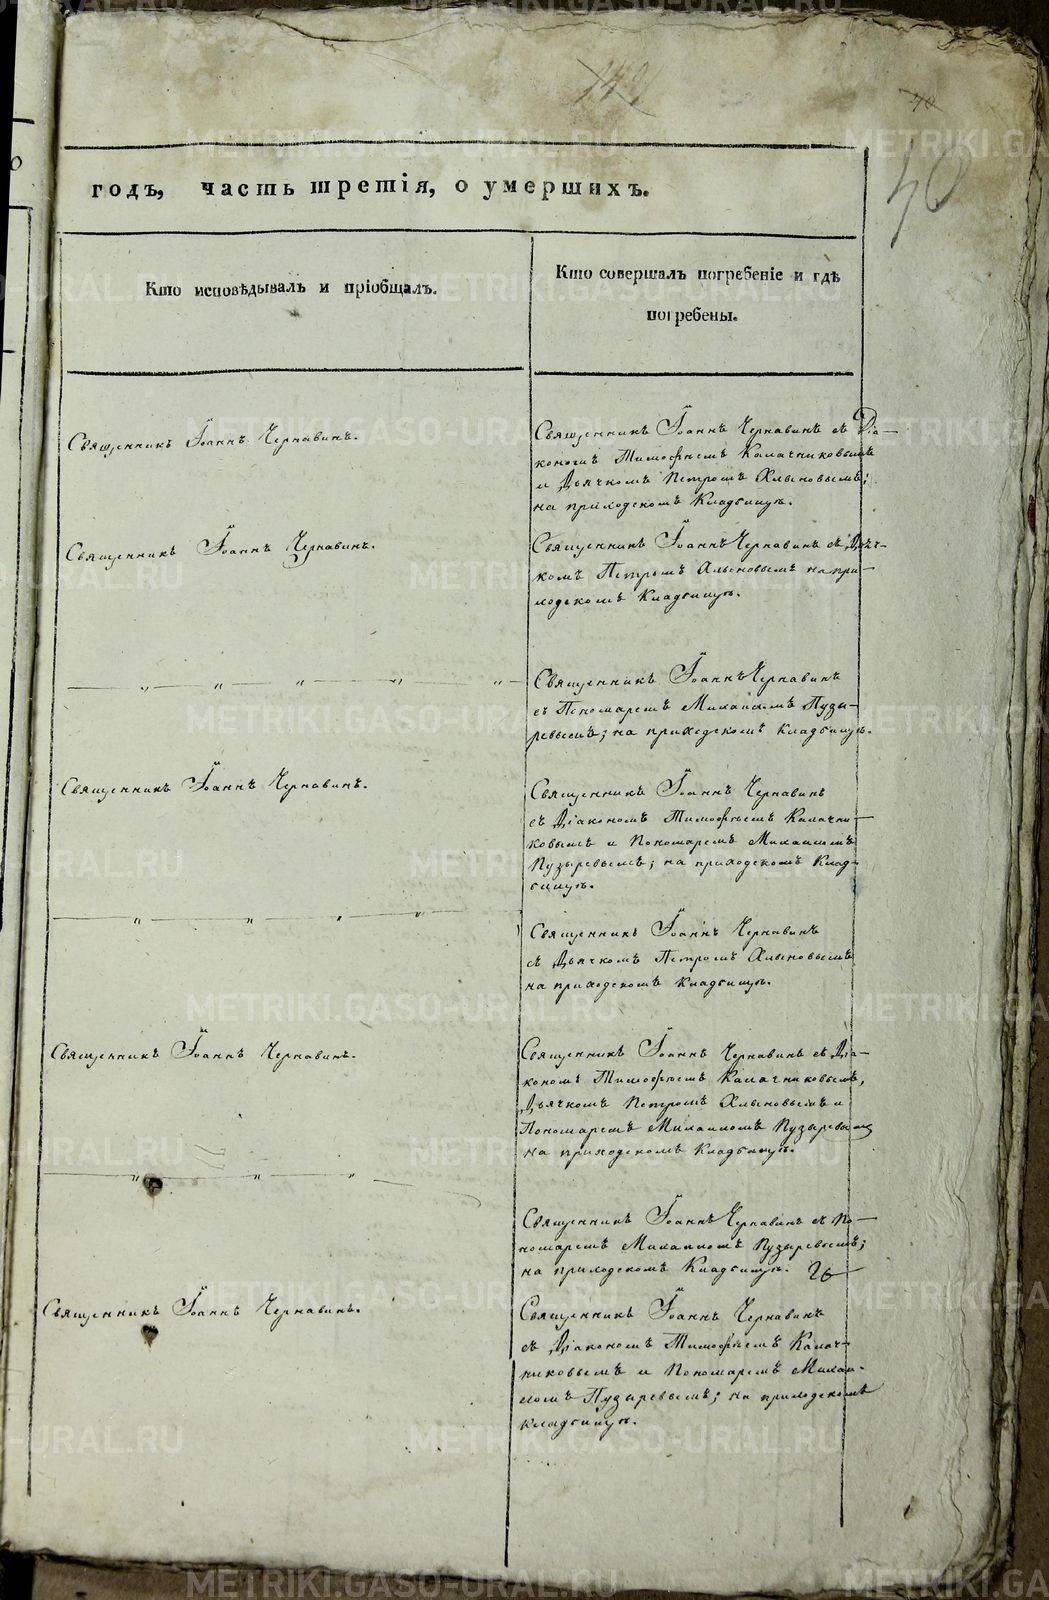 40
40
годъ, часть третія, о умершихъ.
Кто исповѣдывалъ и пріобщалъ.
Кто совершалъ погребеніе и гдѣ
погребены.
Священникъ Іоаннъ Чернавинъ.
Священникъ Іоаннъ Чернавинъ съ Діа—
кономъ Тимофѣемъ Калачниковымъ
и Дьячкомъ Петромъ Хлыновымъ;
на приходскомъ Кладбищѣ.
Священникъ Іоаннъ Чернавинъ.
Священникъ Іоаннъ Чернавинъ съ Дьяч-
комъ Петромъ Хлыновымъ на при—
ходскомъ Кладбищѣ.
— „ — „ — „ — „ — „ —
Священникъ Іоаннъ Чернавинъ
съ Пономаремъ Михаиломъ Пузы—
ревымъ; на приходскомъ Кладбищѣ.
Священникъ Іоаннъ Чернавинъ.
Священникъ Іоаннъ Чернавинъ
съ Діакономъ Тимофѣемъ Калачни—
ковымъ и Пономаремъ Михаиломъ
Пузыревымъ; на приходскомъ Клад-
бищѣ.
— „ — „ — „ — „ —
Священникъ Іоаннъ Чернавинъ
съ Дьячкомъ Петромъ Хлыновымъ
на приходскомъ Кладбищѣ.
Священникъ Іоаннъ Чернавинъ.
Священникъ Іоаннъ Чернавинъ съ Діа—
кономъ Тимофѣемъ Калачниковымъ,
Дьячкомъ Петромъ Хлыновымъ и
Пономаремъ Михаиломъ Пузыревымъ
на приходскомъ Кладбищѣ.
— „ — „ — „ —
Священникъ Іоаннъ Чернавинъ съ По—
номаремъ Михаиломъ Пузыревымъ;
на приходскомъ Кладбищѣ.
Священникъ Іоаннъ Чернавинъ.
Священникъ Іоаннъ Чернавинъ
съ Діакономъ Тимофѣемъ Калач-
никовымъ и Пономаремъ Михаи-
ломъ Пузыревымъ; на приходскомъ
Кладбищѣ.
METRIKI.GASO-URAL.RU